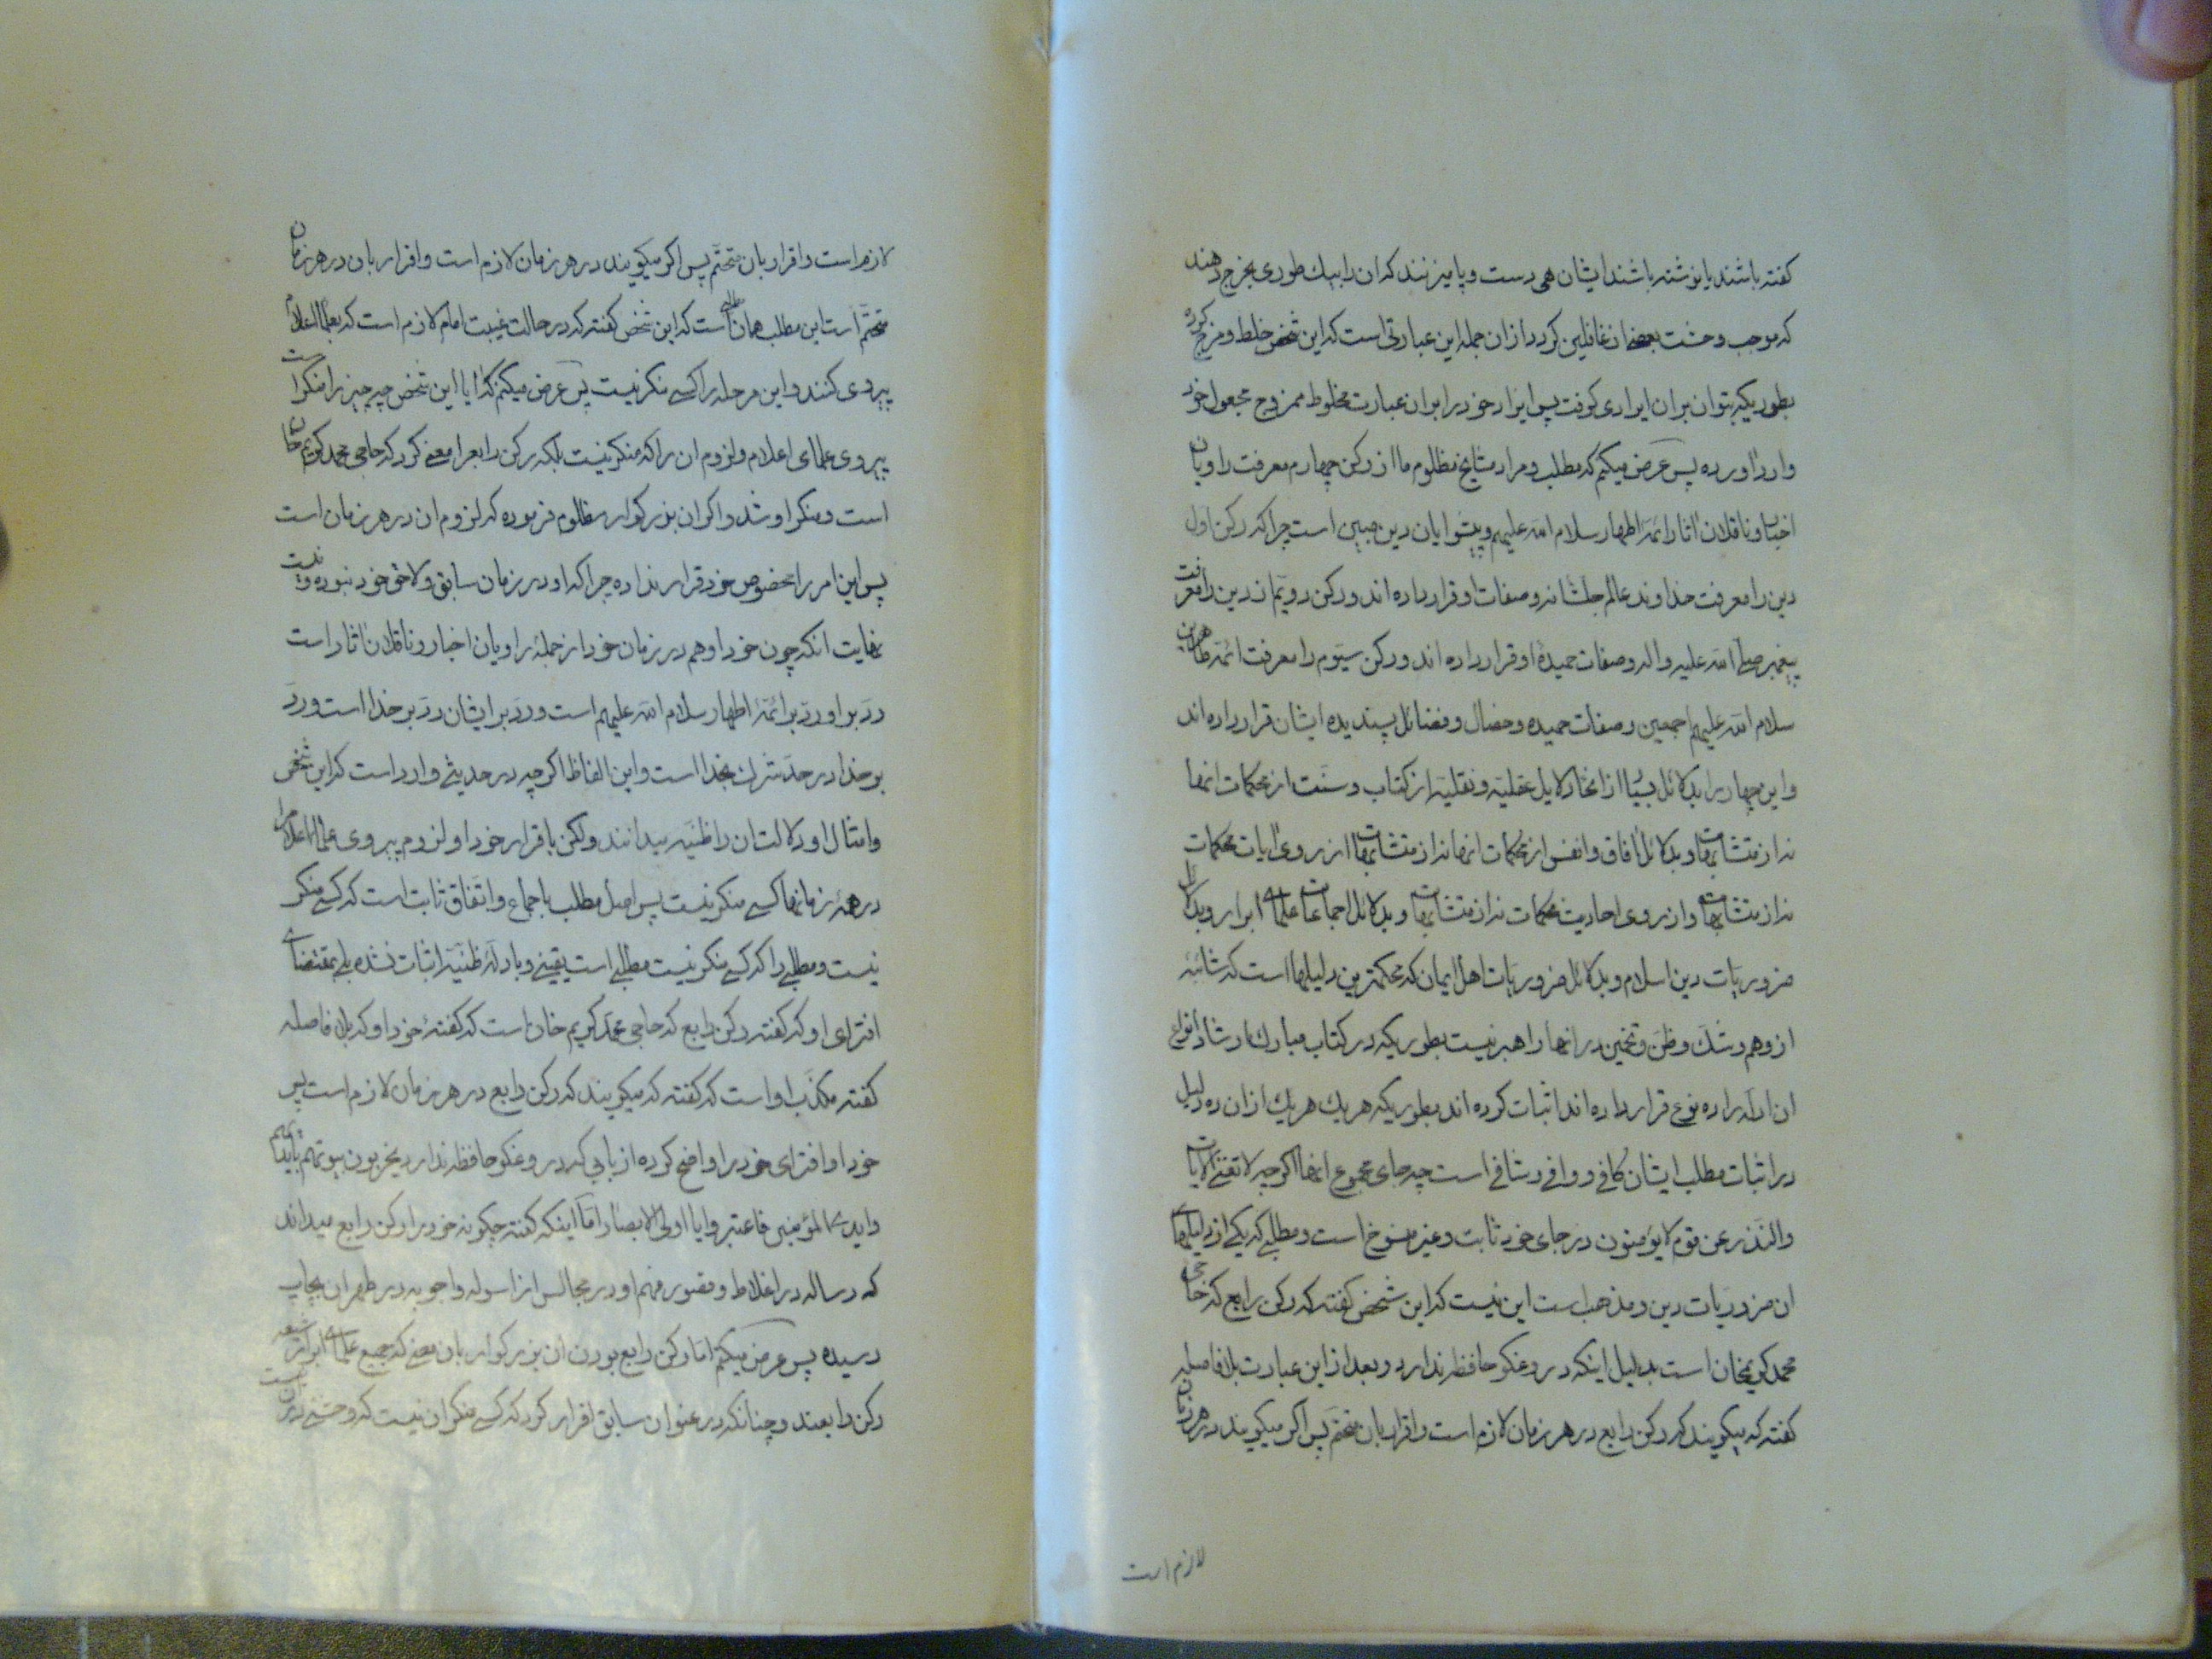 گفته باشند یا نوشته باشند ایشان همی دست و پا میزنند که ان را بیک طوری بخرج دهند
که موجب وحشت بعضی از غافلین کردد از ان جمله این عبارتی است که این شخص خلط و مزج کرده
بطوریکه بتوان بران ایرادی کرفت پس ایراد خود را بران عبارت مخلوط ممزوج مجعول خود
وارد اورده پس عرض میکنم که مطلب و مراد مشایخ مظلوم ما از رکن چهارم معرفت راویان
اخبار و ناقلان اثار ائمه اطهار سلام الله علیهم و پیشوایان دین مبین است چرا که رکن اول
دین را معرفت خداوند عالم جلشانه و صفات او قرار داده اند و رکن دویم از دین را معرفت
پیغمبر صلی الله علیه واله و صفات حمیدهٔ او قرار داده اند و رکن سیوم را معرفت ائمه طاهرین
سلام الله علیهم اجمعین و صفات حمیده و خصال و فضائل پسندیده ایشان قرار داده اند
و این چهار را بدلائل بسیار از انحاء دلایل عقلیه و نقلیه از کتاب و سنت از محکمات انها
نه از متشابهات و بدلائل افاق و انفس از محکمات انها نه از متشابهات از روی ایات محکمات
نه از متشابهات و از روی احادیث محکمات نه از متشابهات و بدلائل اجماعات علمای ابرار و بدلائل
ضروریات دین اسلام و بدلائل ضروریات اهل ایمان که محکمترین دلیلها است که شائبه
از وهم و شک و ظن و تخمین در انها راهبر نیست بطوریکه در کتاب مبارک ارشاد انواع
ان ادله را ده نوع قرار داده اند اثبات کرده اند بطوریکه هر یک هر یک از ان ده دلیل
در اثبات مطلب ایشان کافی و وافی و شافی است چه جای مجموع انها اکر چه لاتغنی الایات
والنذر عن قوم لا یؤمنون در جای خود ثابت و غیر منسوخ است و مطلبی که یکی از دلیلهای
ان ضروریات دین و مذهب است این نیست که این شخص کفته که رکن رابع که حاجی
محمد کریمخان است بدلیل اینکه دروغکو حافظه ندارد و بعد از این عبارت بلا فاصله
کفته که میکویند که رکن رابع در هر زمان لازم است و اقرار بان متحتم پس اکر میکویند در هر زمان
لازم است
لازم است و اقرار بان متحتم پس اکر میکویند در هر زمان لازم است و اقرار بان در هر زمان
متحتم است این مطلب همان است که این شخص کفته که در حالت غیبت امام لازم است که بعلمای اعلام
پیروی کنند و این مرحله را کسی منکر نیست پس عرض میکنم که ایا این شخص چه چیز را منکر است
پیروی علمای اعلام و لزوم ان را که منکر نیست بلکه رکن رابع را معنی کرد که حاجی محمد کریم خان
است و منکر او شد و اکر ان بزرکوار مظلوم فرموده که لزوم ان در هر زمان است
پس این امر را مخصوص خود قرار نداده چرا که او در زمان سابق و لاحق خود نبوده و نیست
نهایت انکه چون خود او هم در زمان خود از جملهٔ راویان اخبار و ناقلان اثار است
رد بر او رد بر ائمهٔ اطهار سلام الله علیهم است و رد بر ایشان رد بر خدا است و رد
بر خدا در حد شرک بخدا است و این الفاظ اکر چه در حدیثی وارد است که این شخص
و امثال او دلالت ان را ظنیه میدانند ولکن باقرار خود او لزوم پیروی علمای اعلام را
در همهٔ زمانها کسی منکر نیست پس اصل مطلب باجماع و اتفاق ثابت است که کسی منکر
نیست و مطلبی را که کسی منکر نیست مطلبی است یقینی و بادلهٔ ظنیه اثبات نشده بلی بمقتضای
افترای او که کفته رکن رابع که حاجی محمد کریم خان است که کفتهٔ خود او که بلا فاصله
کفته مکذب او است که کفته که میکویند که رکن رابع در هر زمان لازم است پس
خود او افترای خود را واضح کرده از بابی که دروغکو حافظه ندارد یخربون بیوتهم بایدیهم
وایدی المؤمنین فاعتبروا یا اولی الابصار اما اینکه کفته چکونه خود را رکن رابع میداند
که رساله در اغلاط و قصور فهم او در مجالس از اسوله و اجوبه در طهران بچاپ
رسیده پس عرض میکنم اما رکن رابع بودن ان بزرکوار بان معنی که جمیع علمای ابرار شیعه
رکن رابعند و چنانکه در عنوان سابق اقرار کرد که کسی منکر ان نیست که وحشتی در ان نیست